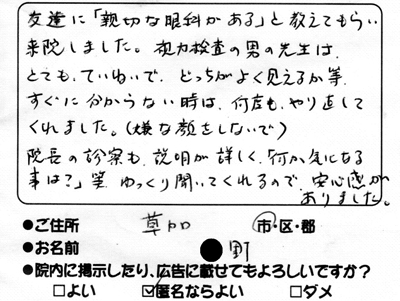 友達に「親切な眼科がある」と教えてもらい
来院しました。視力検査の男の先生は、
とても、ていねいで、どっちがよく見えるか等、
すぐに分からない時は、何度も、やり直して
くれました。(嫌な顔をしないで)
院長の診察も、説明が詳しく、「何か気になる
事は?」等、ゆっくり聞いてくれるので、安心感が
ありました。
●ご住所 草加 市・区・郡
●お名前 ●野
●院内に掲示したり、広告に載せてもよろしいですか?
□よい ☑匿名ならよい □ダメ